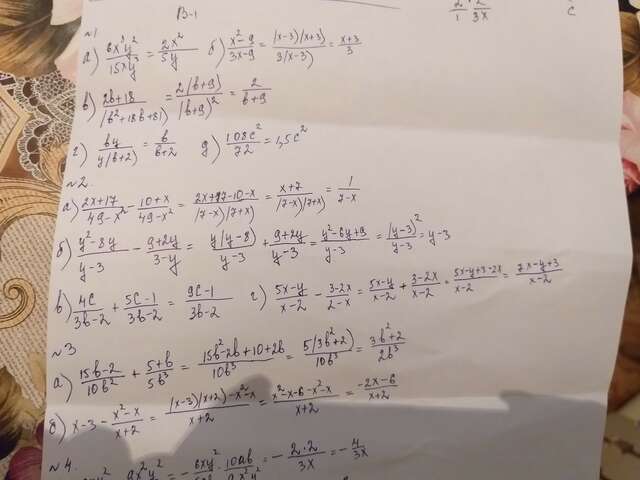 B-1
2/1 · 2/3x
c
№1
а) 6x³y²/15xy³ = 2x²/5y б) x²-9/3x-9 = (x-3)(x+3)/3(x-3) = x+3/3
в) 2b+18/(b²+18b+81) = 2(b+9)/(b+9)² = 2/b+9
г) by/y(b+2) = b/b+2 д) 108c²/72 = 1,5c²
№2.
а) 2x+17/49-x² - 10+x/49-x² = 2x+17-10-x/(7-x)(7+x) = x+7/(7-x)(7+x) = 1/7-x
б) y²-8y/y-3 - 9+2y/3-y = y(y-8)/y-3 + 9+2y/y-3 = y²-6y+9/y-3 = (y-3)²/y-3 = y-3
в) 4c/3b-2 + 5c-1/3b-2 = 9c-1/3b-2 г) 5x-y/x-2 - 3-2x/2-x = 5x-y/x-2 + 3-2x/x-2 = 5x-y+3-2x/x-2 = 7x-y+3/x-2
№3
а) 15b-2/10b² + 5+b/5b³ = 15b²-2b+10+2b/10b³ = 5(3b²+2)/10b³ = 3b²+2/2b³
б) x-3 - x²-x/x+2 = (x-3)(x+2)-x²-x/x+2 = x²-x-6-x²-x/x+2 = -2x-6/x+2
№4.
= - 6xy²/ · 10ab/ = - 2·2/3x = - 4/3x